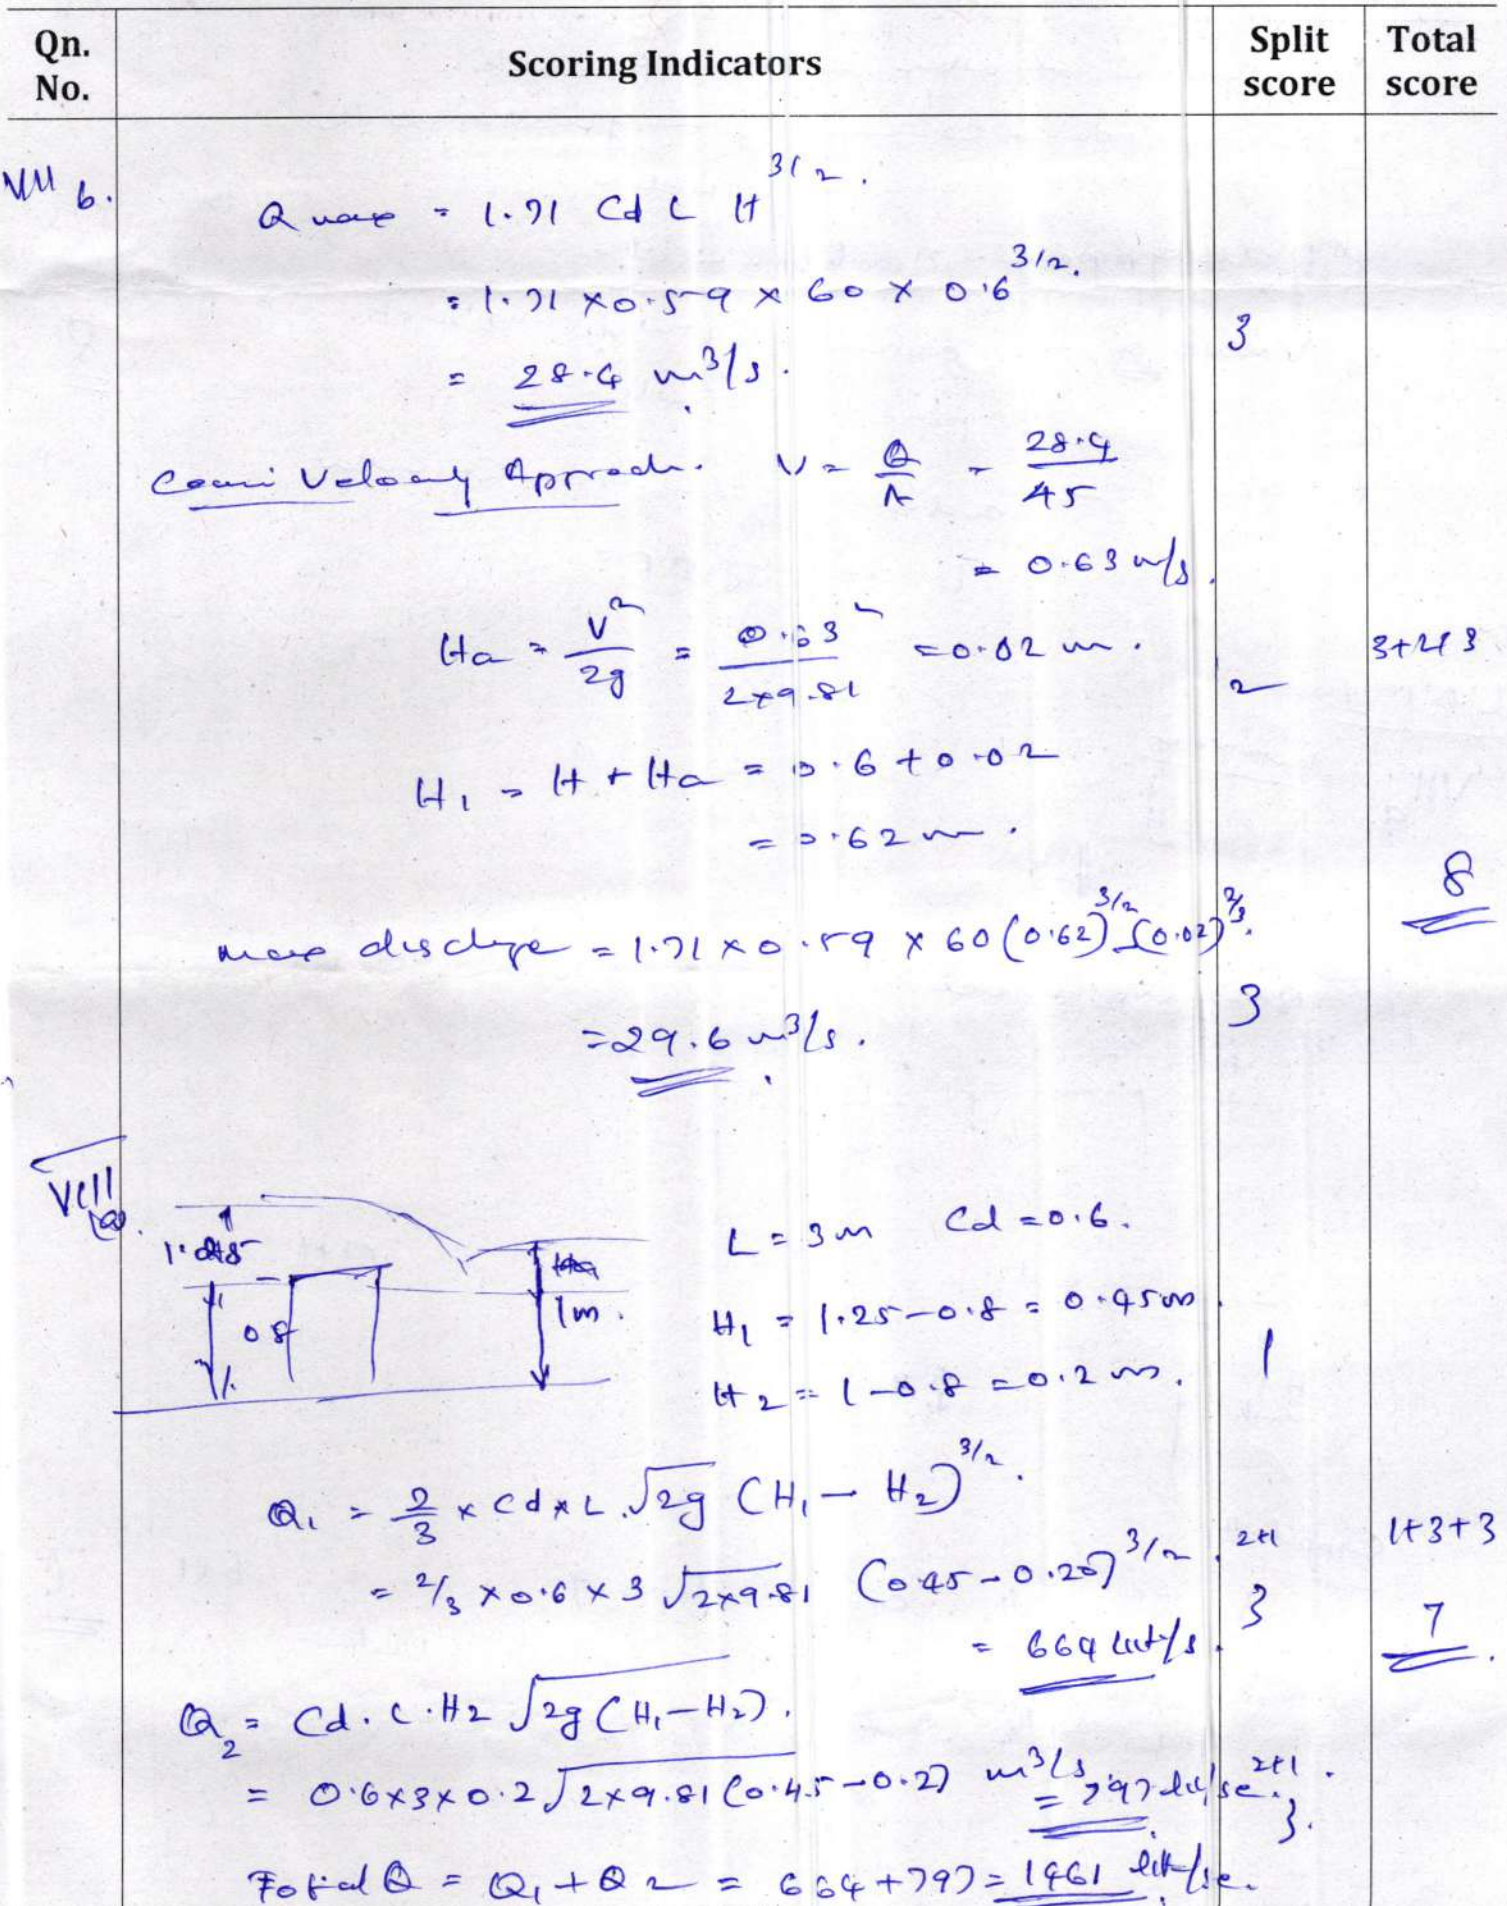 Qn. No. Scoring Indicators Split score Total score
VII b.
Q max = 1.71 Cd L H^3/2.
= 1.71 × 0.59 × 60 × 0.6^3/2.
3
= 28.4 m³/s.
Velocity Approach. V = Q/A = 28.4/45
= 0.63 m/s.
Ha = V²/2g = 0.63²/2×9.81 = 0.02 m.
2
3+2+3
H1 = H + Ha = 0.6 + 0.02
= 0.62 m.
8
max discharge = 1.71 × 0.59 × 60 (0.62)^3/2 - (0.02)^2/3.
3
= 29.6 m³/s.
VIII (a).
L = 3m Cd = 0.6.
0.8
1m.
H1 = 1.25 - 0.8 = 0.45m
1
H2 = 1 - 0.8 = 0.2 m.
Q1 = 2/3 × Cd × L. √2g (H1 - H2)^3/2.
2+1
1+3+3
= 2/3 × 0.6 × 3 √2×9.81 (0.45 - 0.20)^3/2
3
= 664 lit/s.
7
Q2 = Cd. L. H2 √2g (H1 - H2).
= 0.6×3×0.2 √2×9.81 (0.45 - 0.2) m³/s = 797 lit/se.
2+1.
3.
Total Q = Q1 + Q2 = 664 + 797 = 1461 lit/se.